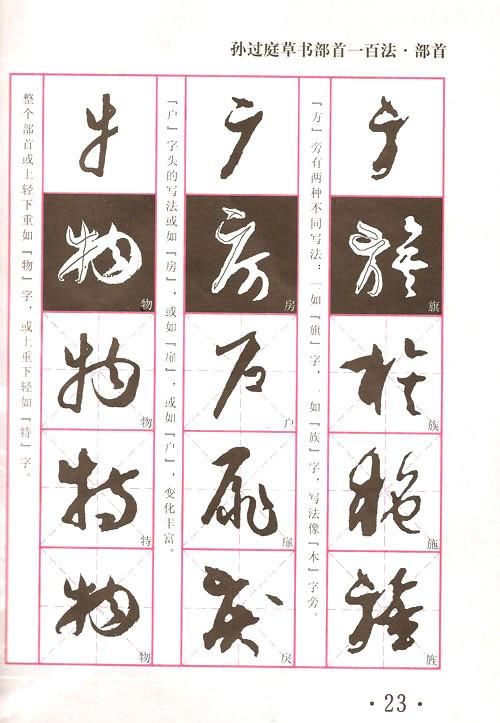 孙过庭草书部首一百法·部首
旗
族
施
旌
「方」旁有两种不同写法：一如「旗」字，一如「族」字，写法像「木」字旁。
房
户
扉
戾
「户」字头的写法或如「房」，或如「扉」，或如「户」，变化丰富。
物
物
特
物
整个部首或上轻下重如「物」字，或上重下轻如「特」字。
·23·